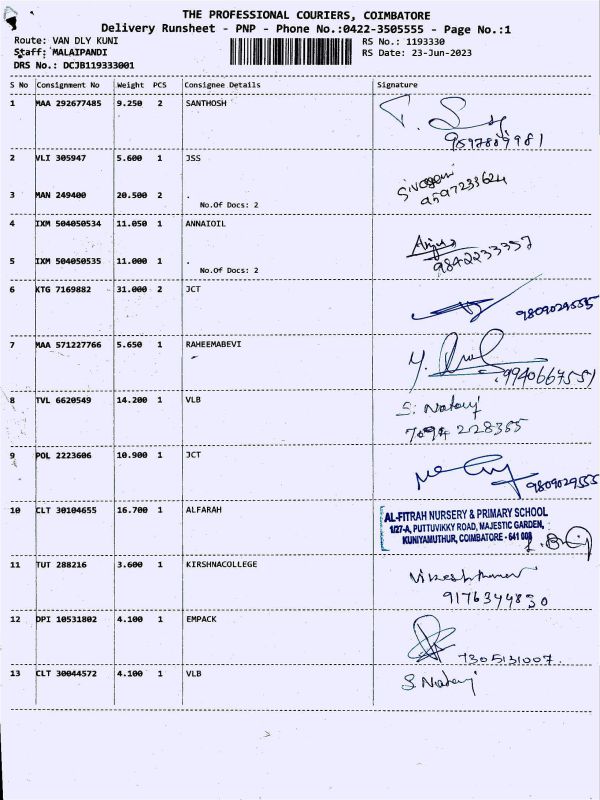 THE PROFESSIONAL COURIERS, COIMBATORE
Delivery Runsheet - PNP - Phone No.:0422-3505555 - Page No.:1
Route: VAN DLY KUNI
RS No.: 1193330
Staff: MALAIPANDI
RS Date: 23-Jun-2023
DRS No.: DCJB119333001
S No Consignment No Weight PCS Consignee Details Signature
1 MAA 292677485 9.250 2 SANTHOSH
9597809981
2 VLI 305947 5.600 1 JSS
3 MAN 249400 20.500 2 .
9597233624
No.Of Docs: 2
4 IXM 504050534 11.050 1 ANNAIOIL
Anjus
9842233357
5 IXM 504050535 11.000 1 .
No.Of Docs: 2
6 KTG 7169882 31.000 2 JCT
9809029555
7 MAA 571227766 5.650 1 RAHEEMABEVI
9940667551
8 TVL 6620549 14.200 1 VLB S. Nataraj
7094 228385
9 POL 2223606 10.900 1 JCT
9809029555
10 CLT 30104655 16.700 1 ALFARAH
AL-FITRAH NURSERY & PRIMARY SCHOOL
1/27-A, PUTTUVIKKY ROAD, MAJESTIC GARDEN,
KUNIYAMUTHUR, COIMBATORE - 641 008
11 TUT 288216 3.600 1 KIRSHNACOLLEGE
9176344830
12 DPI 10531802 4.100 1 EMPACK
7305131007.
13 CLT 30044572 4.100 1 VLB S. Nataraj